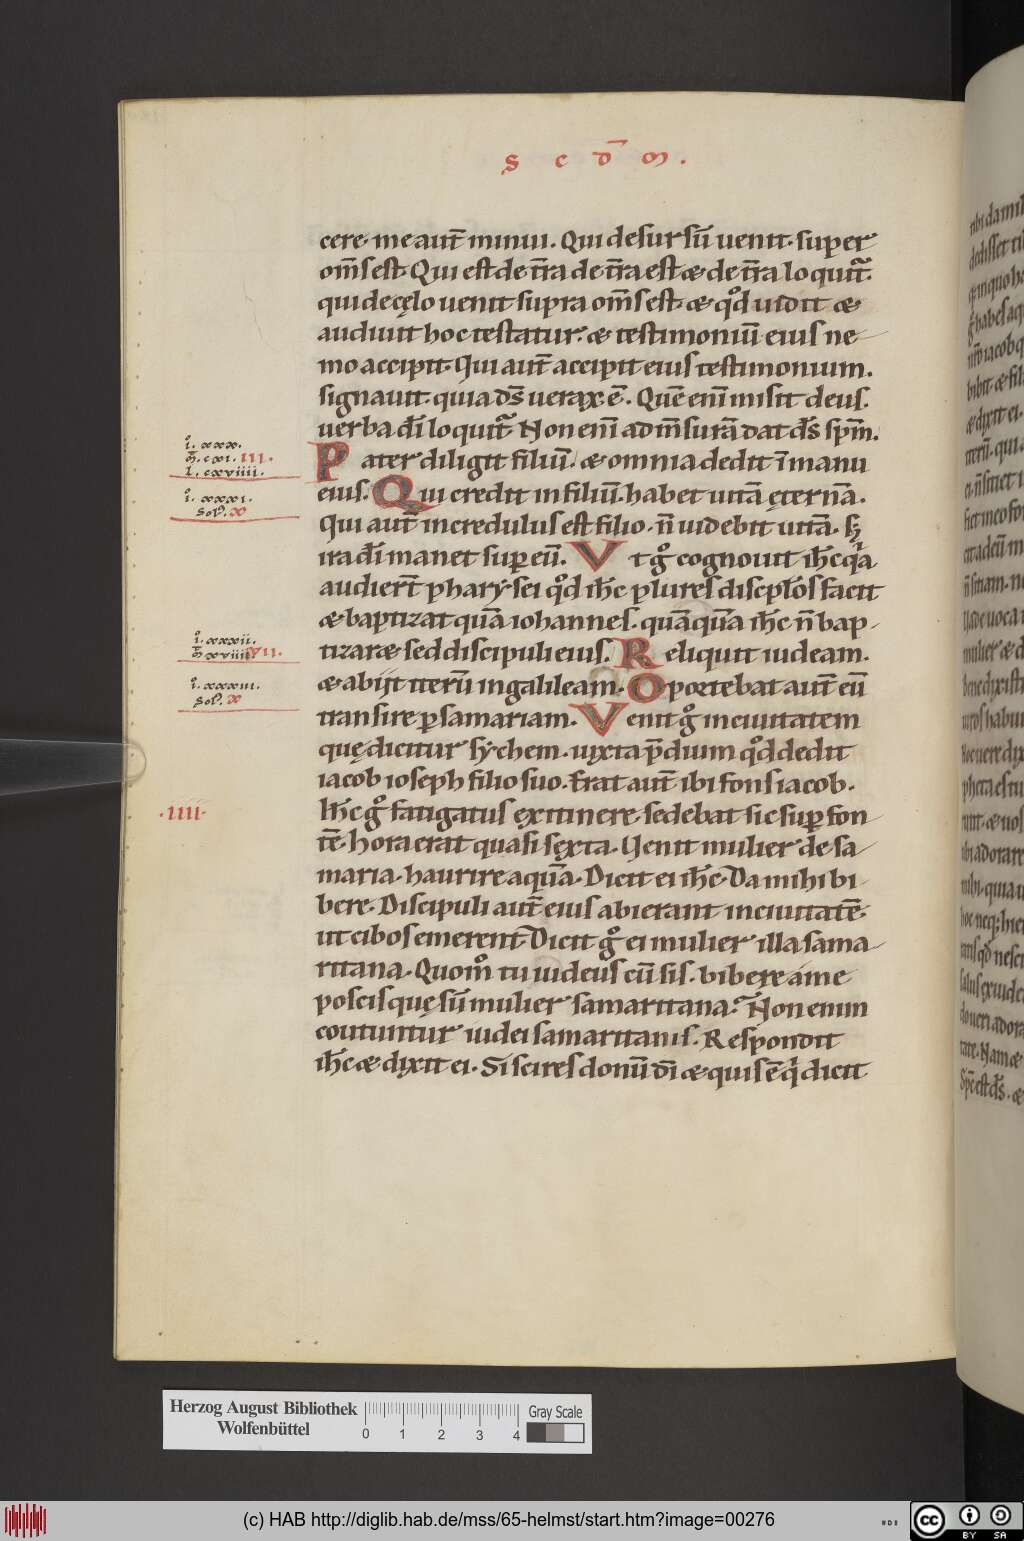 S C D̄ M.
cere· me aut̄ minui. Qui desursū uenit· super
om̄s est· Qui est de t̄ra de t̄ra est & de t̄ra loquit᷑.
qui de cęlo uenit supra om̄s est· & qd̊ uidit &
audiuit hoc testatur· & testimoniū eius ne
mo accipit· Qui aut̄ accipit eius testimonium.
signauit· quia ds̄ uerax ē. Quē enī misit deus.
uerba dī loquit᷑· Non enī ad m̄surā dat ds̄ spm̄.
i. xxx.
m̄. cxi. III.
l. cxviiii.
Pater diligit filiū· & omnia dedit ī manu
eius. Qui credit in filiū· habet uitā ęternā.
i. xxxi.
Sol'. X
Qui aut̄ incredulus est filio· n̄ uidebit uitā· s;
ira dī manet sup eū. Vt g̊ cognouit ih̄c qa
audiert̄ pharysei qd̊ ih̄c plures discplōs facit
& baptizat quā iohannes. quāquā ih̄c n̄ bap-
i. xxxii.
m̄ xviiii VII.
tizar& sed discipuli eius. Reliquit iudeam.
i. xxxiii.
Sol'. X
& abijt iterū in galileam· Oportebat aut̄ eū
transire p samariam. Venit g̊ in ciuitatem
quę dicitur sychem· iuxta p̄dium qd̊ dedit
iacob ioseph filio suo. Erat aut̄ ibi fons iacob.
·IIII·
Ih̄c g̊ fatigatus ex itinere· sedebat sic sup fon
tē· hora erat quasi sexta· Uenit mulier de sa
maria· haurire aquā· Dicit ei ih̄c· Da mihi bi
bere· Discipuli aut̄ eius abierant in ciuitatē·
ut cibos emerent· Dicit g̊ ei mulier illa sama
ritana· Quom̊ tu iudeus cū sis· bibere a me
poscis quę sū mulier samaritana? Non enim
coutuntur iudei samaritanis. Respondit
ih̄c & dixit ei. Si scires donū dī & quis ē q' dicit
Herzog August Bibliothek
Wolfenbüttel
0 1 2 3 4
Gray Scale
(c) HAB http://diglib.hab.de/mss/65-helmst/start.htm?image=00276
cc BY SA